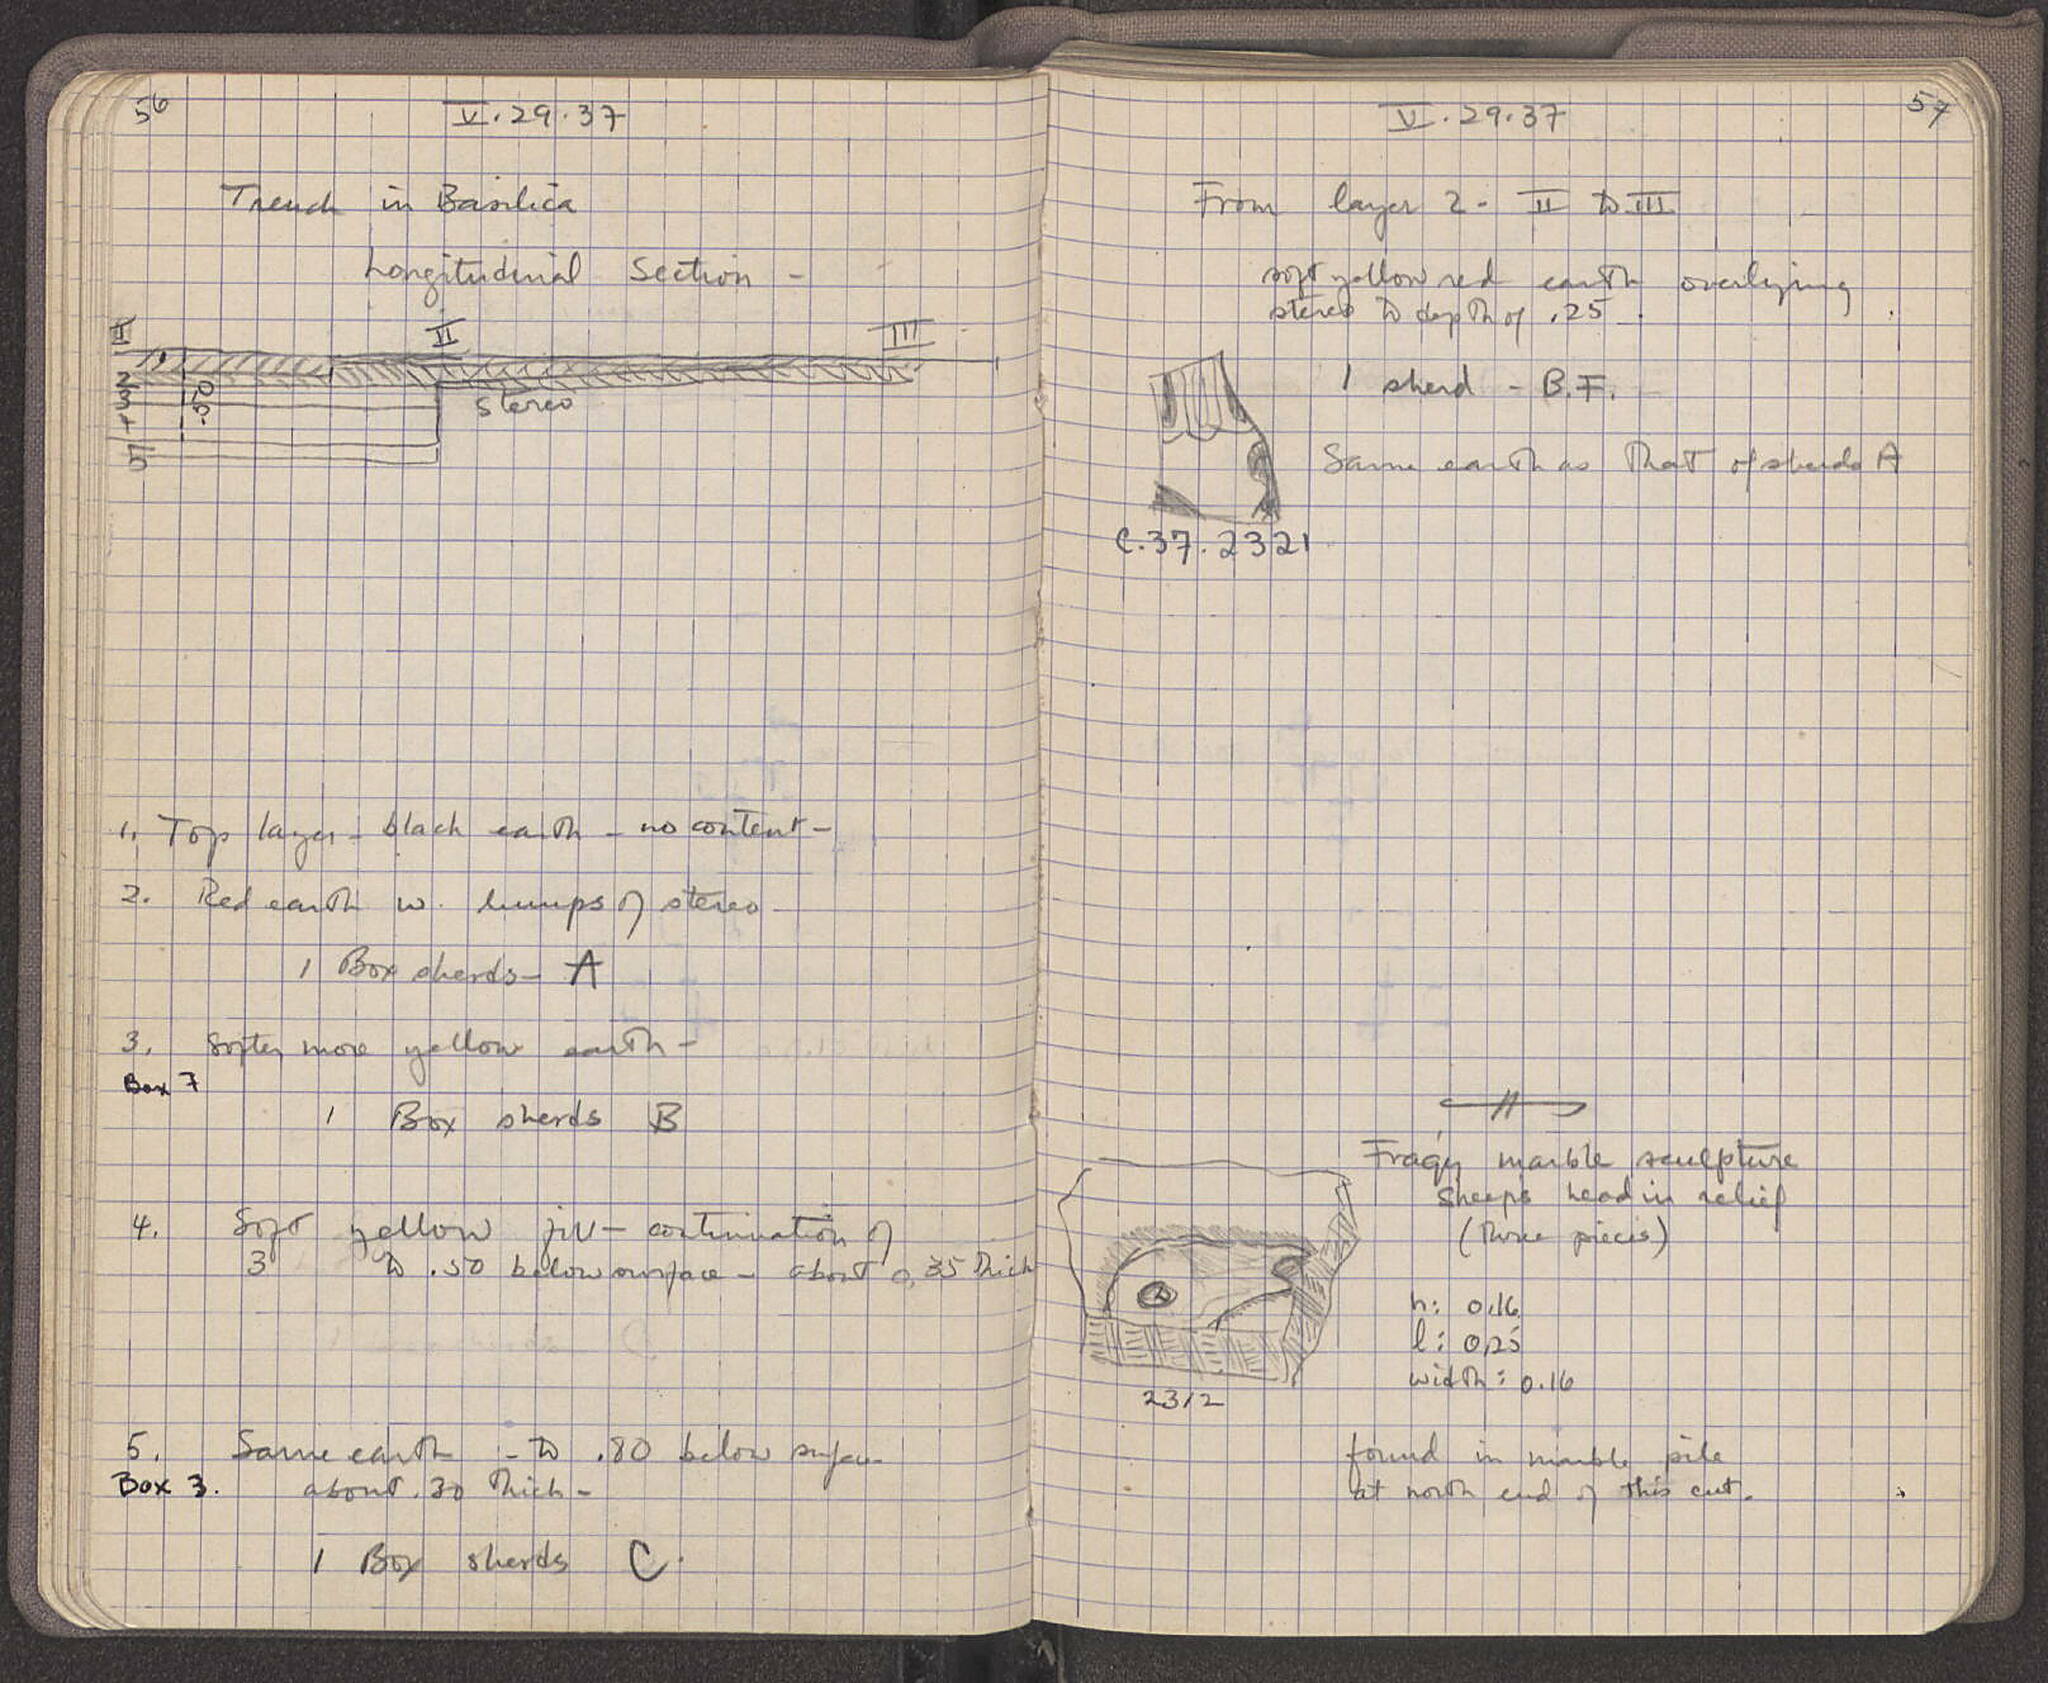 56
V.29.37
Trench in Basilica
Longitudinal Section -
I II III
1
2
3
4
5
.50
stereo
1. Top layer - black earth - no content -
2. Red earth w. lumps of stereo
1 Box sherds - A
3. Softer more yellow earth -
Box 7
1 Box sherds B
4. Soft yellow fill - continuation of
3 to .50 below surface - about 0,35 thick
5. Same earth - to .80 below surface
Box 3. about .30 thick -
1 Box sherds C.
57
V.29.37
From layer 2 - II to III
soft yellow red earth overlying
stereo to depth of .25
1 sherd - B.F.
Same earth as that of sherds A
C.37.2321
Frag marble sculpture
sheep's head in relief
(three pieces)
h: 0,16
l: 0,25
width: 0.16
2312
found in marble pile
at north end of this cut.